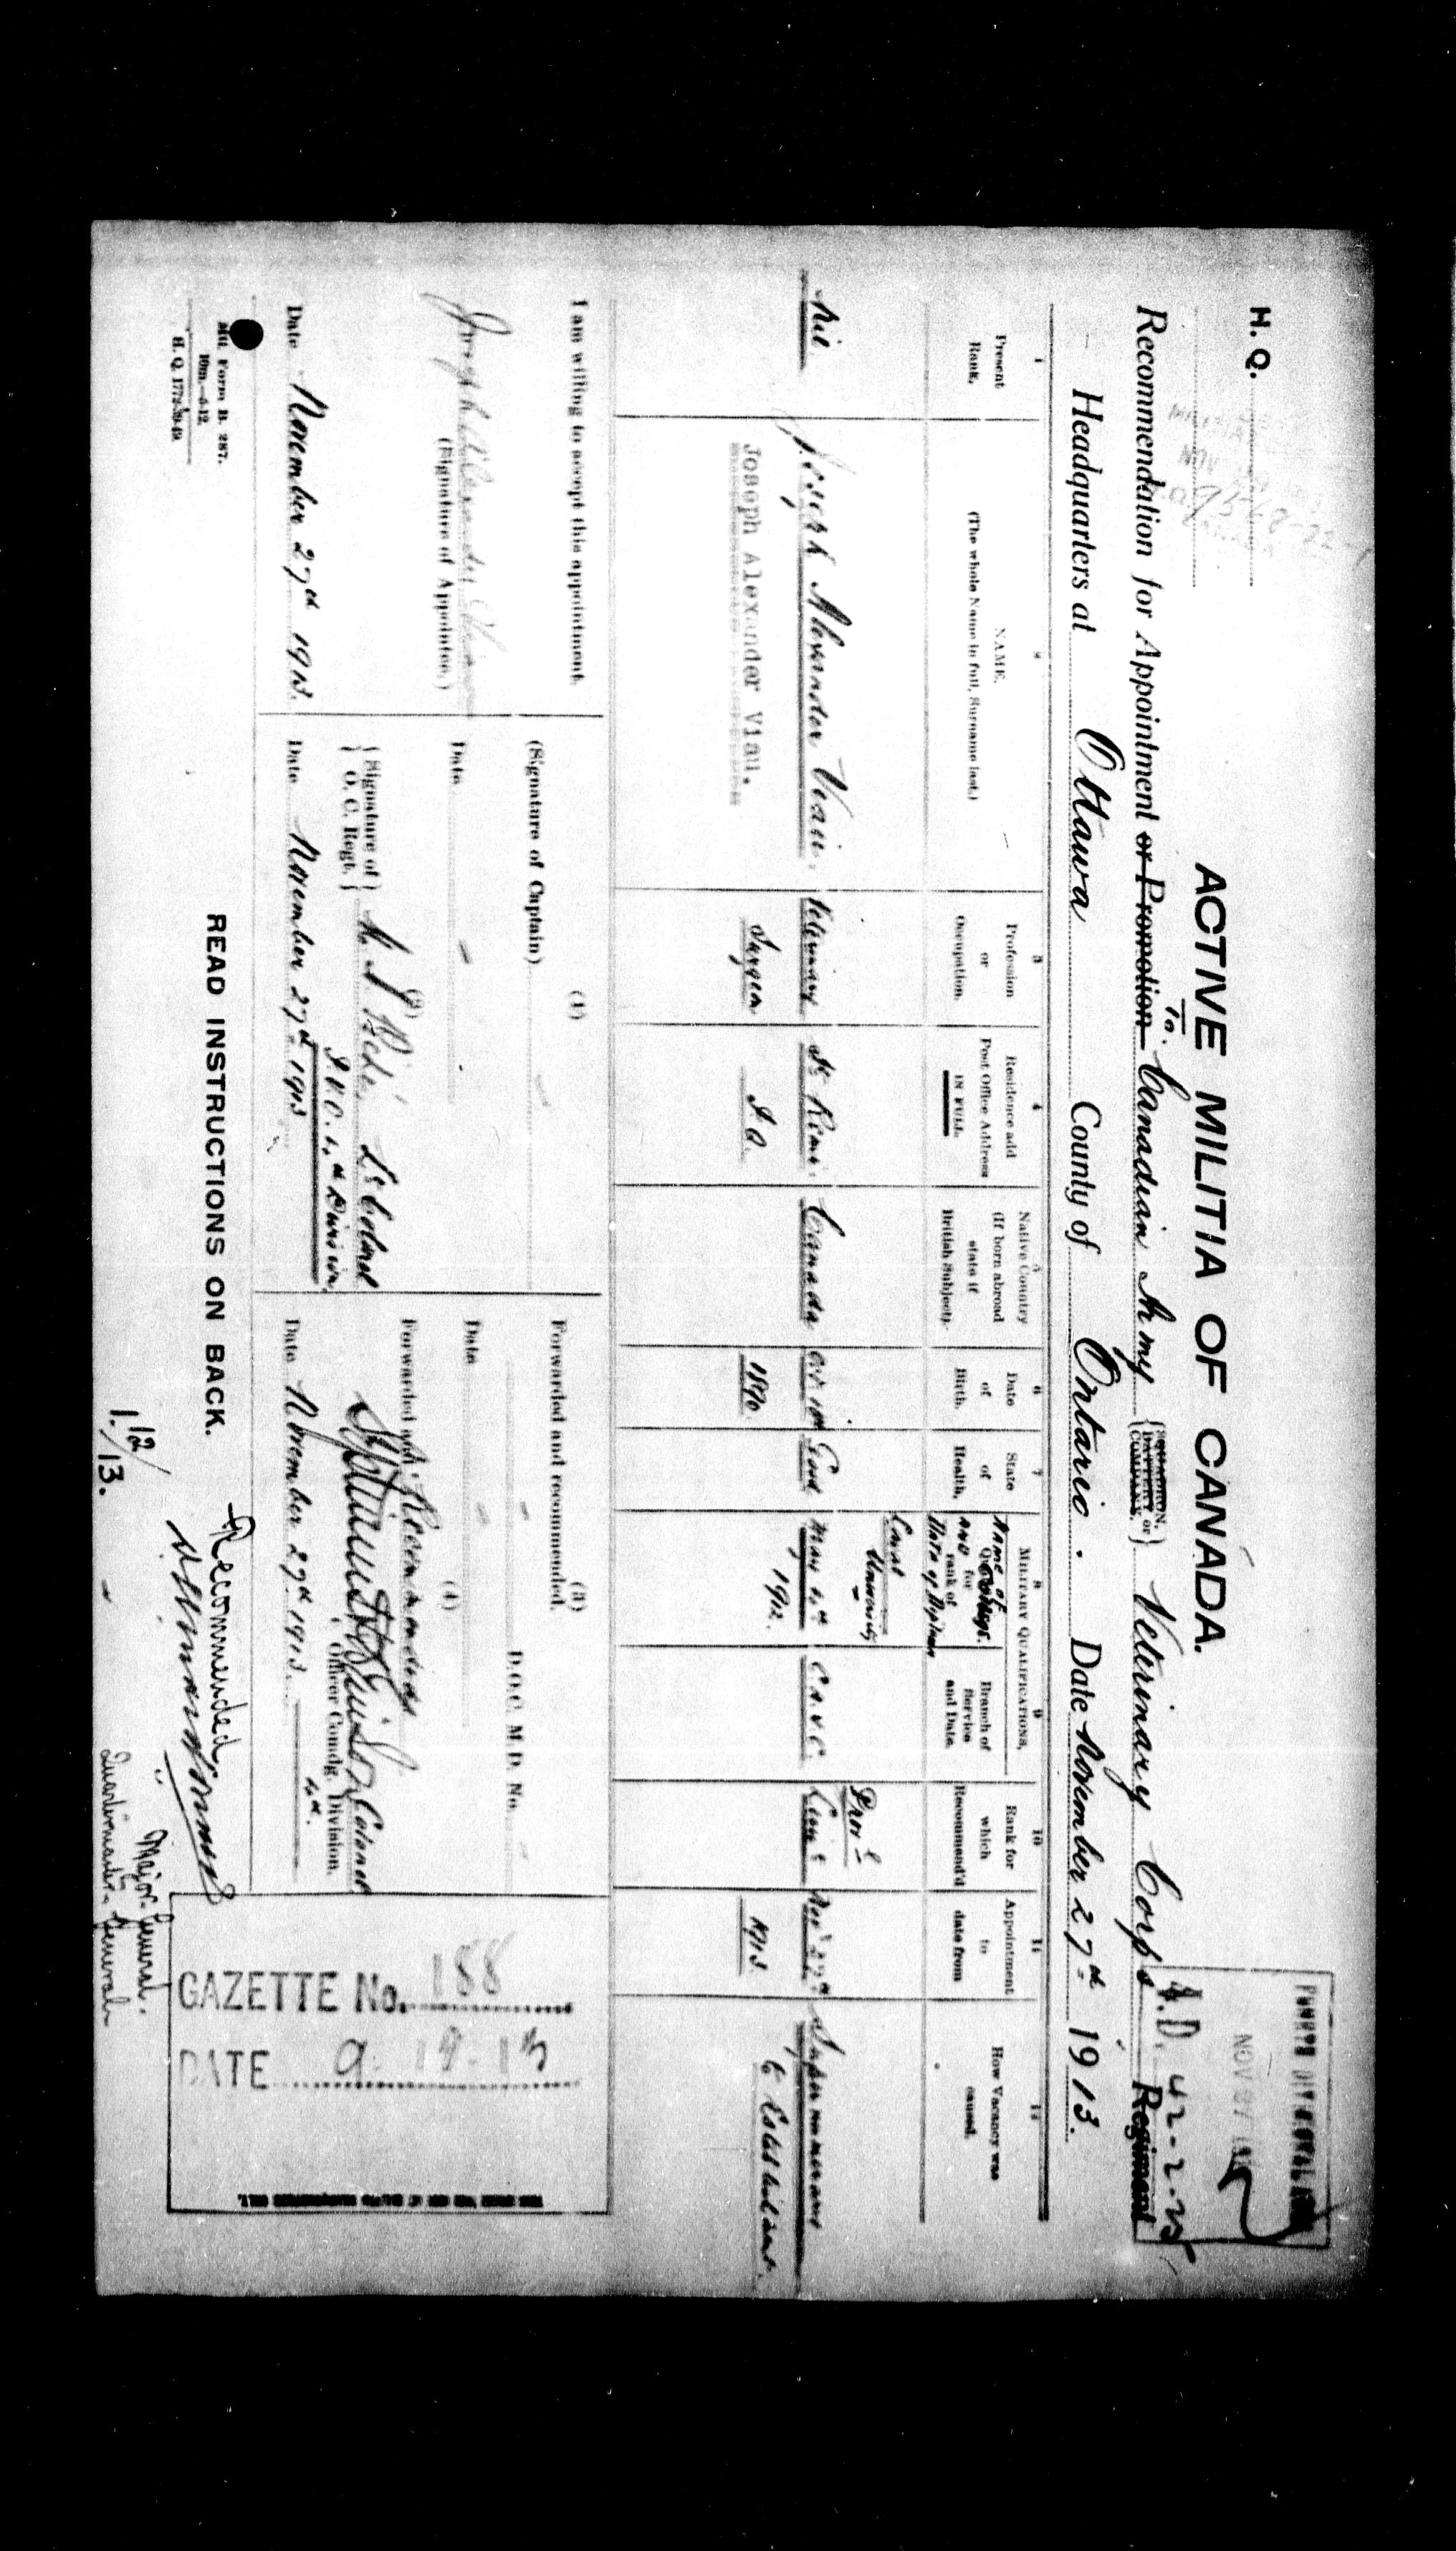 H. Q.
FOURTH DIVISIONAL AREA
NOV 27 1913
4.D. 42-2-25
ACTIVE MILITIA OF CANADA.
Recommendation for Appointment or Promotion to Canadian Army { SQUADRON. BATTERY or COMPANY. } Veterinary Corps Regiment
Headquarters at Ottawa County of Ontario. Date November 27th 1913.
1
Present
Rank.
2
NAME.
(The whole Name in full, Surname last.)
3
Profession
or
Occupation.
4
Residence add
Post Office Address
IN FULL.
5
Native Country
(If born abroad
state if
British Subject).
6
Date
of
Birth.
7
State
of
Health.
MILITARY QUALIFICATIONS.
8
Name of
College
and
Date of Diploma
rank of
9
Branch of
Service
and Date.
10
Rank for
which
Recommend'd
11
Appointment
to
date from
12
How Vacancy was
caused.
Nil
Joseph Alexander Viau.
Joseph Alexander Viau.
Veterinary
Surgeon
St Remi
P.Q.
Canada
1890
Good
Laval
University
May 4th
1912.
C.A.V.C.
Prov l
Lieut
Nov 27th
1913.
Supernumerary
to Establishment.
I am willing to accept this appointment.
(Signature of Appointee.)
Date November 27th 1913.
(1)
(Signature of Captain)
Date -
(2)
{ Signature of O. C. Regt. } Lt Colonel
P.V.O. 4th Division
Date November 27th 1913
(3)
Forwarded and recommended.
D.O.C. M.D. No.
Date -
(4)
Forwarded and Recommended
Colonel
Officer Comdg. Division.
4th
Date November 27th 1913.
GAZETTE No. 188
DATE
Mil. Form B. 287.
10m.—4-12.
H. Q. 1772-39-49.
READ INSTRUCTIONS ON BACK.
Recommended,
Major-General.
Quartermaster-General
1.12/13.